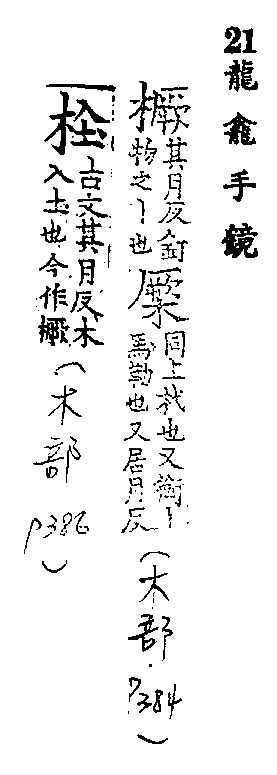 21龍龕手鏡
橛其月反釘物之丨也橜同上杙也又銜丨馬勒也又居月反(木部.P384)
𣏾古文其月反木入土也今作橛(木部P386)